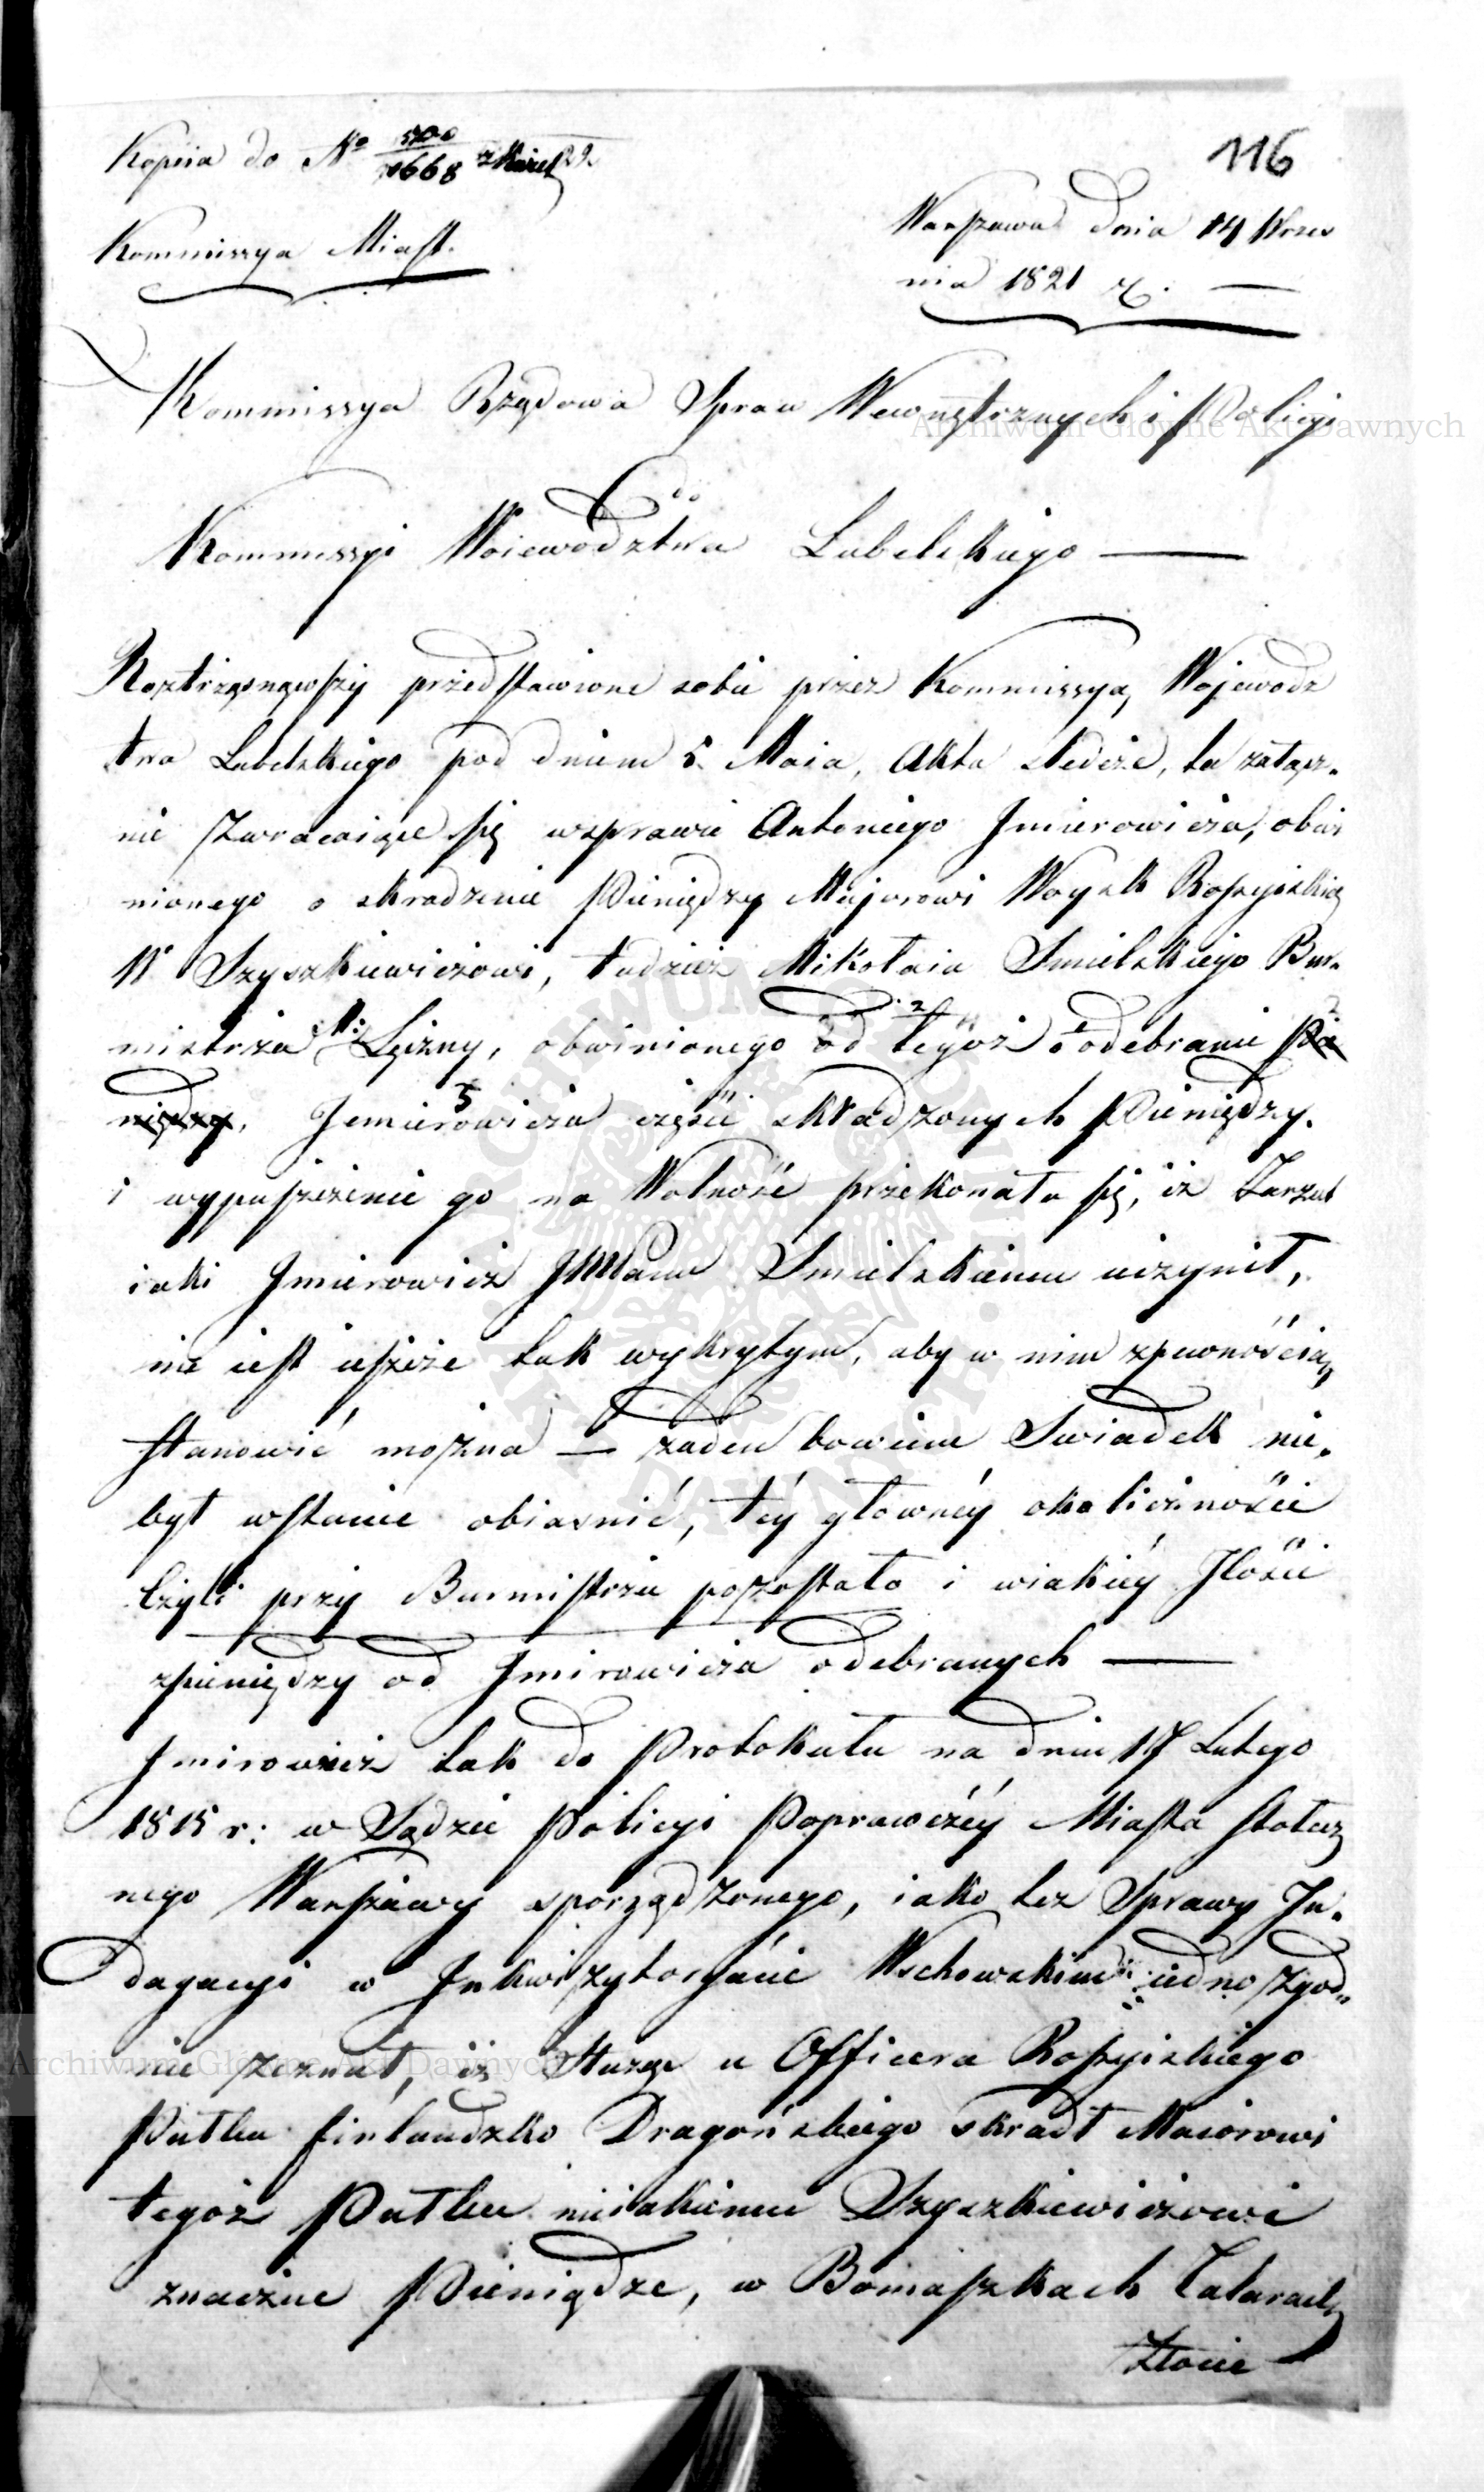 Kopiia do Nº 500/1668
116
Kommissya Miast.
Warszawa dnia 14 Wrześ
nia 1821 r. —
Kommissya Rządowa Spraw Wewnętrznych i Policyi
Do
Kommissyi Woiewodztwa Lubelskiego —
Roztrząsnąwszy przedstawione sobie przez Kommissyą Wojewodz
twa Lubelskiego pod dniem 5. Maia, Akta sledcze, tu załącz.
nie zwracaiące się wsprawie Antoniego Jmierowicza, obwi
nionego o skradzenie Pieniędzy Majorowi Woysk Rossyiskich
W. Szyszkiewiczowi, tudzież Mikołaia Smielskiego Bur.
mistrza M: Łęczny, obwinionego od tegoż o odebranie Pie
niędzy, Jemierowicza części skradzonych Pieniędzy.
i wypuszczenie go na Wolność przekonała się, iż Zarzut
iaki Jmierowicz Smielskiemu uczynił,
nie iest ieszcze tak wykrytym, aby w nim zpewnością
stanowić można — żaden bowiem Swiadek nie.
był wstanie obiasnić, téy głownéy okoliczności
Czyli przy Burmistrzu pozostało i wiakiéy Ilości
zpieniędzy od Jmirowicza odebranych —
Jmirowicz tak do Protokułu na dniu 17 Lutego
1815 r: w Sądzie Policyi Poprawczéy Miasta Stołecz
nego Warszawy sporządzonego, iako też Sprawy In.
dagacyi w Inkwizytoryacie Wschowskim iednozgod„
nie zeznał, iż Służąc u Officera Rossyiskiego
Pułku finlandzko Dragońskiego skradł Maiorowi
tegoż Pułku nieiakiemu Szyszkiewiczowi
znaczne Pieniądze, w Bomaszkach Talarach
Złocie
Archiwum Główne Akt Dawnych
Archiwum Główne Akt Dawnych